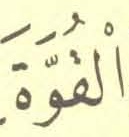 الْقُوَّةَ